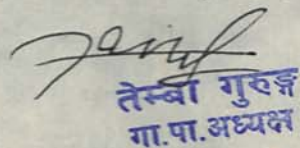 तेम्बा गुरुङ्ग
गा.पा.अध्यक्ष